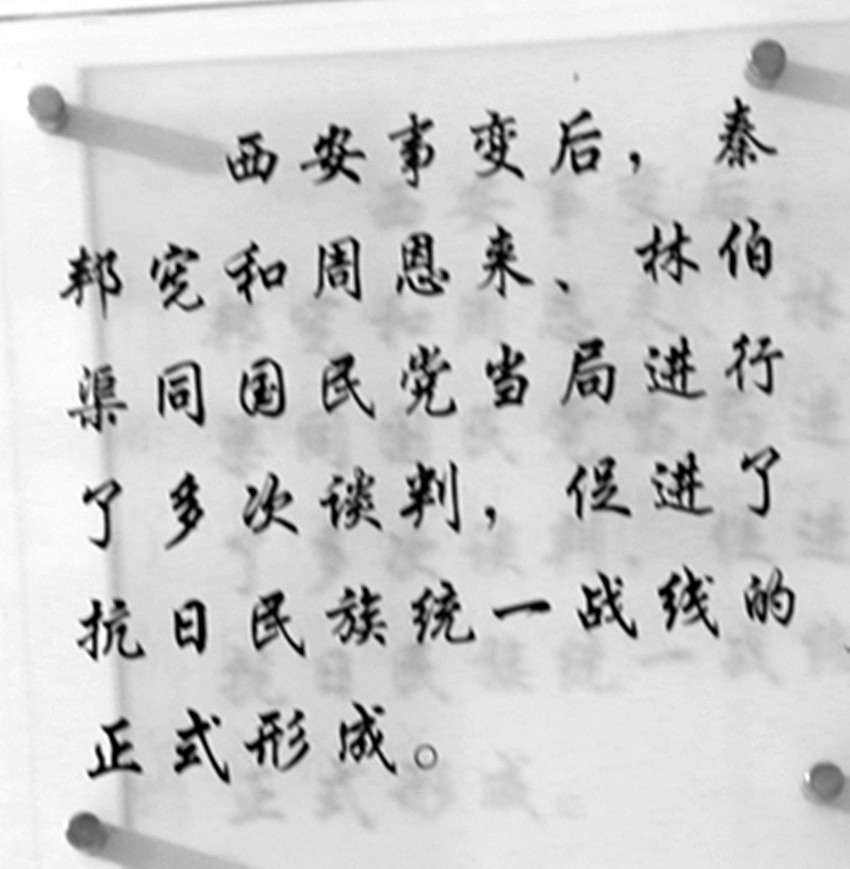 西安事变后，秦
邦宪和周恩来、林伯
渠同国民党当局进行
了多次谈判，促进了
抗日民族统一战线的
正式形成。